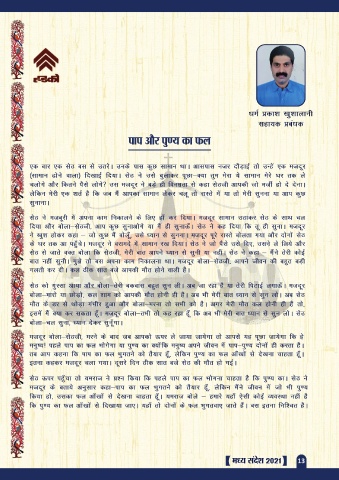 हडको
धर्म प्रकाश खुशालानी
सहायक प्रबंधक
पाप और पुण्य का फल
एक बार एक सेठ बस से उतरे। उनके पास कुछ सामान था। आसपास नजर दौड़ाई तो उन्हें एक मजदूर
(सामान ढोने वाला) दिखाई दिया। सेठ ने उसे बुलाकर पूछा–क्या तुम मेरा ये सामान मेरे घर तक ले
चलोगे और कितने पैसे लोगे? उस मजदूर ने बड़े ही विनम्रता से कहा सेठजी आपकी जो मर्जी हो दे देना।
लेकिन मेरी एक शर्त है कि जब मैं आपका सामान लेकर चलू तो रास्ते में या तो मेरी सुनना या आप कुछ
सुनाना।
सेठ ने मजबूरी में अपना काम निकालने के लिए हाँ कर दिया। मजदूर सामान उठाकर सेठ के साथ चल
दिया और बोला–सेठजी, आप कुछ सुनाओगे या मैं ही सुनाऊँ। सेठ ने कह दिया कि तू ही सुना। मजदूर
ने खुश होकर कहा – जो कुछ मैं बोलूँ, उसे ध्यान से सुनना। मजदूर पूरे रास्ते बोलता गया और दोनों सेठ
के घर तक आ पहुँचे। मजदूर ने बरामदे में सामान रख दिया। सेठ ने जो पैसे उसे दिए, उसने ले लिये और
सेठ से जाते वक्त बोला कि सेठजी, मेरी बात आपने ध्यान से सुनी या नहीं। सेठ ने कहा – मैंने तेरी कोई
बात नहीं सुनी। मुझे तो बस अपना काम निकालना था। मजदूर बोला–सेठजी, आपने जीवन की बहुत बड़ी
गलती कर दी। कल ठीक सात बजे आपकी मौत होने वाली है।
सेठ को गुस्सा आया और बोला–तेरी बकवास बहुत सुन ली। अब जा रहा है या तेरी पिटाई लगाऊँ। मजदूर
बोला–मारो या छोड़ो, कल शाम को आपकी मौत होनी ही है। अब भी मेरी बात ध्यान से सुन लो। अब सेठ
मौत के डर से थोड़ा गंभीर हुआ और बोला–मरना तो सभी को है। अगर मेरी मौत कल होनी ही है तो,
इसमें मैं क्या कर सकता हूँ। मजदूर बोला–तभी तो कह रहा हूँ कि अब भी मेरी बात ध्यान से सुन लो। सेठ
बोला–चल सुना, ध्यान देकर सुनूंगा।
मजदूर बोला–सेठजी, मरने के बाद जब आपको ऊपर ले जाया जायेगा तो आपसे यह पूछा जायेगा कि हे
मनुष्य! पहले पाप का फल भोगेगा या पुण्य का क्योंकि मनुष्य अपने जीवन में पाप–पुण्य दोनों ही करता है।
तब आप कहना कि पाप का फल भुगतने को तैयार हूँ, लेकिन पुण्य का फल आँखों से देखना चाहता हूँ।
इतना कहकर मजदूर चला गया। दूसरे दिन ठीक सात बजे सेठ की मौत हो गई।
सेठ ऊपर पहुँचा तो यमराज ने प्रश्न किया कि पहले पाप का फल भोगना चाहता है कि पुण्य का। सेठ ने
मजदूर के बताये अनुसार कहा–पाप का फल भुगतने को तैयार हूँ, लेकिन मैंने जीवन में जो भी पुण्य
किया हो, उसका फल आँखों से देखना चाहता हूँ। यमराज बोले – हमारे यहाँ ऐसी कोई व्यवस्था नहीं है
कि पुण्य का फल आँखों से दिखाया जाए। यहाँ तो दोनों के फल भुगतवाए जाते हैं। बस इतना निश्चित है।
मध्य संदेश 2021 13